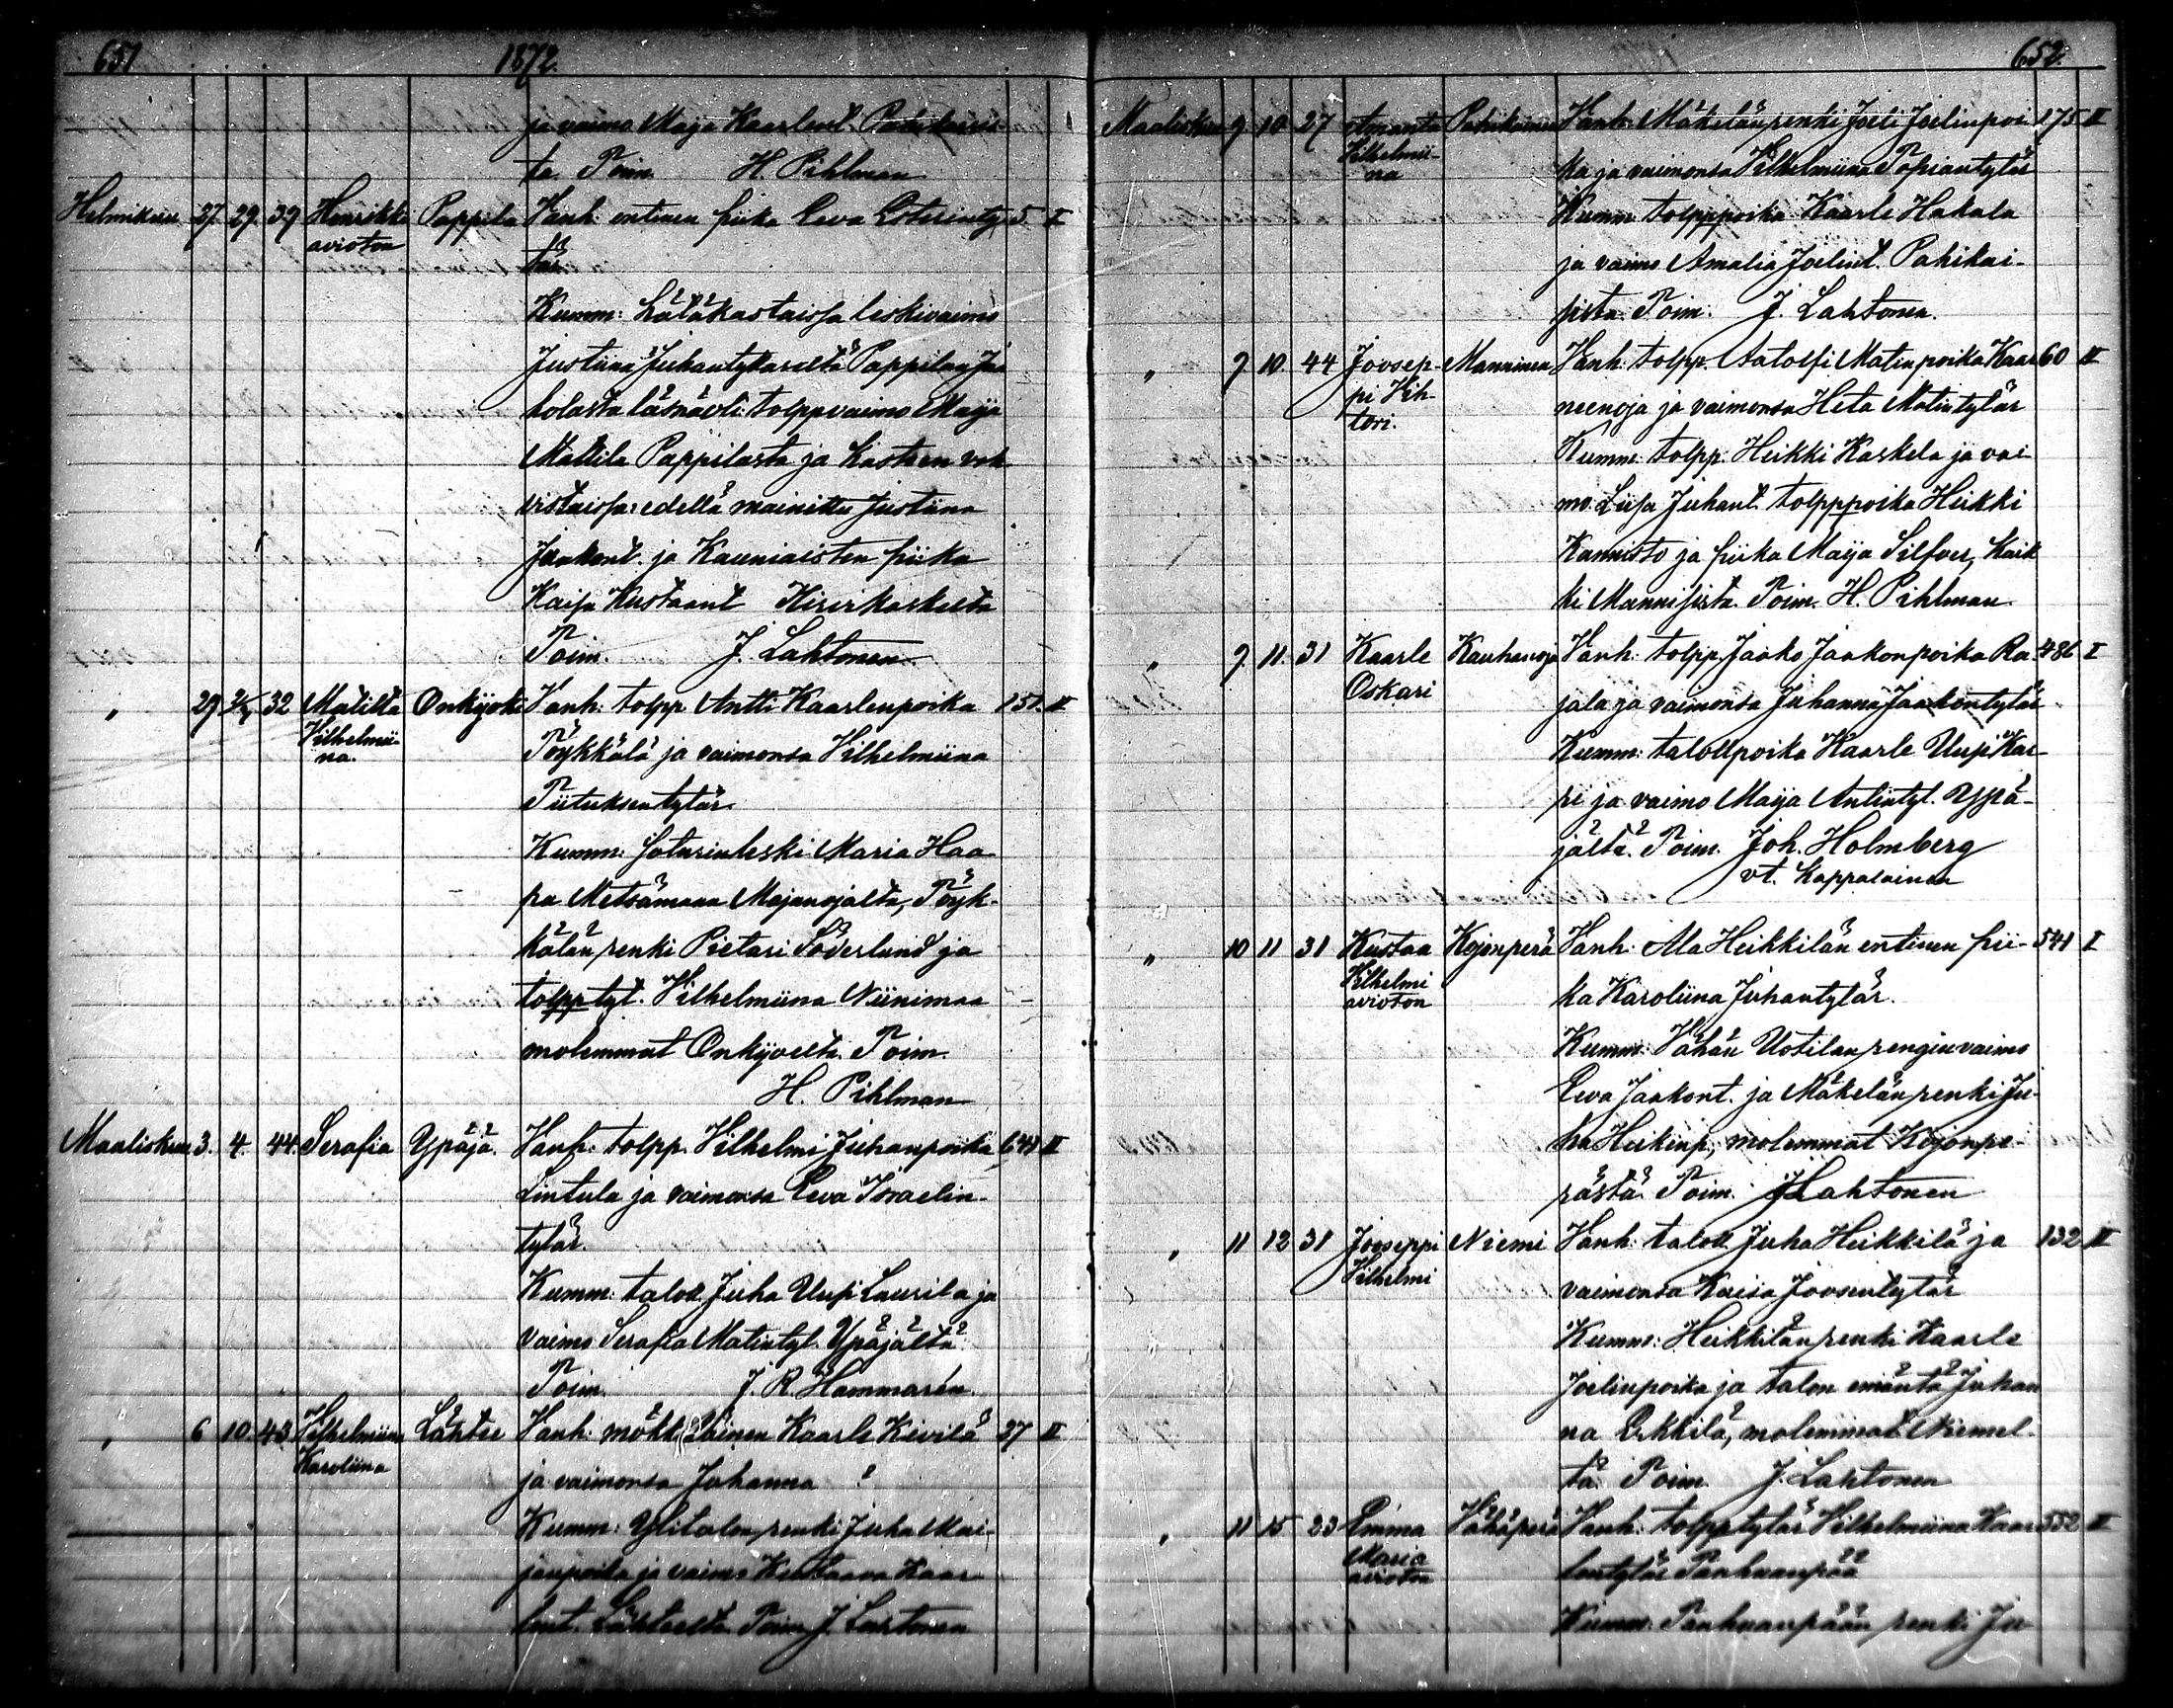 651
1872.
ja vaimo Maija Kaarlent. Pahikaisis-
ta. Poim. H. Pihlman
Helmikuu 27. 29. 39 Henrikki Pappila Vanh: entinen piika Eeva Esterinty- 5 I
avioton
tär
Kumm: Hätäkastaissa leskivaimo
Justiina Juhantyttareltä Pappilan
kolasta läsnäoli tolppvaimo Maija
Mattila Pappilasta ja kasteen vah-
vistaissa: edellä mainittu Justiina
Jaakont. ja Kauniaisten piika
Kaisa Kustaant Hirsikaskelta
Poim. J. Lahtonen
" 29 2/3 32 Matilta Onkijoki Vanh: tolpp Antti Kaarlenpoika 151. II
Vilhelmii-
na.
Töykkälä ja vaimonsa Vilhelmiina
Tiituksentytär
Kumm: Soturinleski Maria Haa-
pa Metsämaan Majanojalta, Töyk-
kälän renki Pietari Söderlund ja
tolpptyt. Vilhelmiina Niinimaa
molemmat Onkijoelta. Poim.
H. Pihlman
Maaliskuu 3. 4. 44. Serafia Ypäjä. Vanh: tolpp. Vilhelmi Juhanpoika 641 II
Lintula ja vaimonsa Eeva Israelin-
tytär.
Kumm: talol. Juha Uusi Laurila ja
vaimo Serafia Matintyt. Ypäjältä
Poim. J. R. Hammarén.
" 6 10. 43. Vilhelmiina Lähtee Vanh: mökkiläinen Kaarle Kivilä 37 II
Karoliina
ja vaimonsa Johanna ?
Kumm: Ylitalon renki Juha Mai-
janpoika ja vaimo Kustaava Kaar-
lent. Lähteeltä. Poim J. Lahtonen
652.
Maaliskuu 9 10 27 Amanta Pahikainen Vanh: Mäkelän renki Joeli Joelinpoi- 175 II
Vilhelmii-
na
ka ja vaimonsa Vilhelmiina Topiantytär
Kumm: tolpppoika Kaarle Hakala
ja vaimo Amalia Joelint. Pahikai-
sista. Poim. J. Lahtonen.
" 9 10. 44 Joosep- Manninen Vanh: tolpp. Aatolfi Matinpoika Kaar- 60 II
pi Vih-
tori.
neenoja ja vaimonsa Heta Matintytär
Kumm: tolpp. Heikki Kaskela ja vai-
mo Liisa Juhant. tolpppoika Heikki
Kannisto ja piika Maija Silfver, kaik-
ki Mannisista. Poim. H. Pihlman.
" 9 11. 31 Kaarle Kauhanoja Vanh: tolpp. Jaako Jaakonpoika Ra- 486 I
Oskari
jala ja vaimonsa Johanna Jaakontytär
Kumm: talollpoika Kaarle Uusi Kar-
pi ja vaimo Maija Antintyt. Ypä-
jältä. Poim. Joh. Holmberg
vt. Kappalainen
" 10 11 31 Kustaa Kojonperä Vanh: Ala Heikkilän entinen pii- 541 I
Vilhelmi
avioton
ka Karoliina Juhantytär.
Kumm: Vähän Uotilan renginvaimo
Eeva Jaakont. ja Mäkelän renki Ju-
ha Heikinp, molemmat Kojonpe-
rästä. Poim. J Lahtonen
" 11 12 31 Jooseppi Niemi Vanh: talol. Juha Heikkilä ja 132 II
Vilhelmi
vaimonsa Kaisa Joosentytär
Kumm: Heikkilän renki Kaarle
Joelinpoika ja talon emäntä Johan-
na Erkkilä, molemmat Niemel-
tä. Poim. J. Lahtonen
" 11 15 23 Emma Vähäperä Vanh: tolpptytär Vilhelmiina Kaar- 552 II
Maria
avioton
lentytär Panhuanpää
Kumm: Panhuanpään renki Ju-